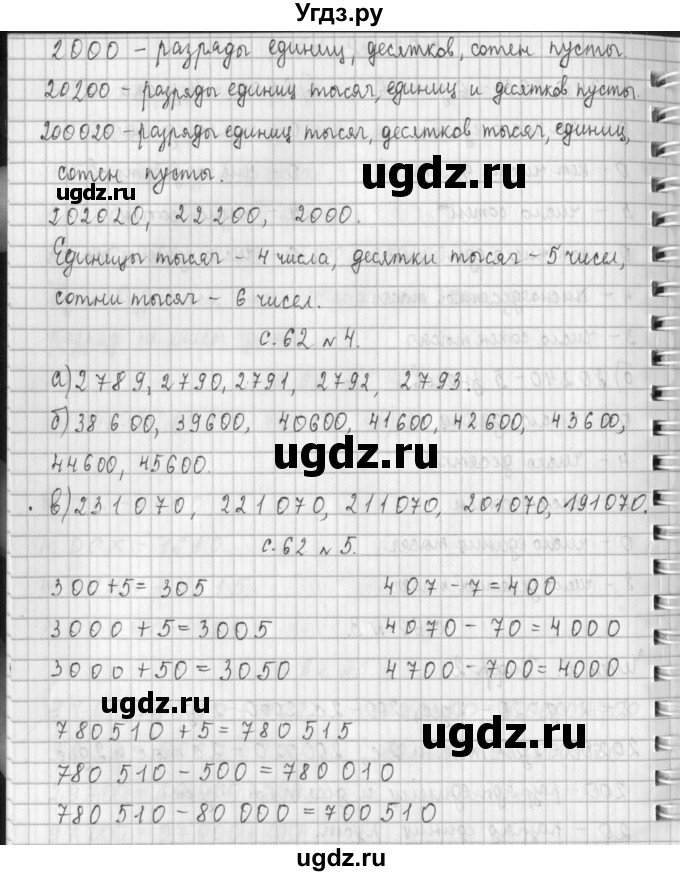 Угдз.ру
2000 – разряды единиц, десятков, сотен пусты.
20200 – разряды единиц тысяч, единиц и десятков пусты.
200020 – разряды единиц тысяч, десятков тысяч, единиц,
сотен пусты.
ugdz.ru
ugdz.ru
202020, 22200, 2000.
Единицы тысяч – 4 числа, десятки тысяч – 5 чисел,
сотни тысяч – 6 чисел.
с. 62 № 4.
а) 2789, 2790, 2791, 2792, 2793.
б) 38 600, 39600, 40600, 41600, 42600, 43600,
ugdz.ru
44600, 45600.
в) 231070, 221070, 211070, 201070, 191070.
с. 62 № 5.
300 + 5 = 305 407 – 7 = 400
3000 + 5 = 3005 4070 – 70 = 4000
3000 + 50 = 3050 4700 – 700 = 4000
ugdz.ru
ugdz.ru
780510 + 5 = 780515
780 510 – 500 = 780 010
780 510 – 80 000 = 700 510
ugdz.ru